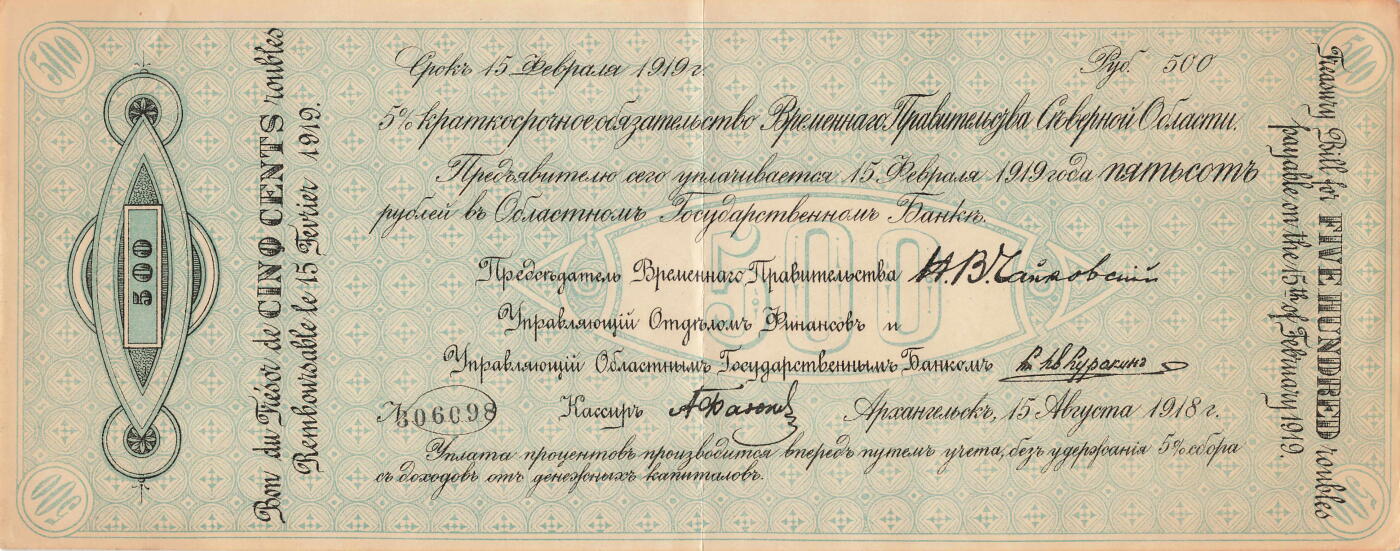 500
500
Bon du Trésor de CINQ CENTS roubles
Remboursable le 15 Fevrier 1919.
500
Срокъ 15 Февраля 1919 г. Руб. 500
5% краткосрочное обязательство Временнаго Правительства Сѣверной Области.
Предъявителю сего уплачивается 15 Февраля 1919 года пятьсотъ
рублей въ Областномъ Государственномъ Банкѣ.
500
Предсѣдатель Временнаго Правительства Н.В.Чайковскій
Управляющій Отдѣломъ Финансовъ и
Управляющій Областнымъ Государственнымъ Банкомъ Куракинъ
№ 306098 Кассиръ Архангельскъ, 15 Августа 1918 г.
Уплата процентовъ производится впередъ путемъ учета, безъ удержанія 5% сбора
съ доходовъ отъ денежныхъ капиталовъ.
Treasury Bill for FIVE HUNDRED roubles
payable on the 15th of February 1919.
500
500